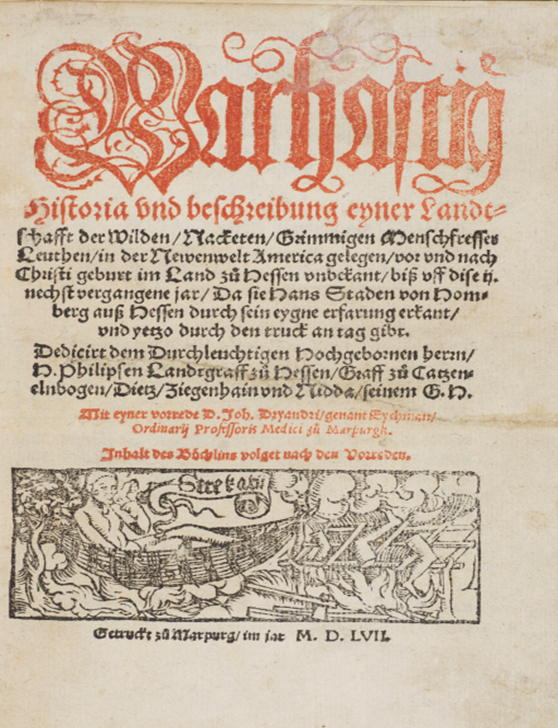 Warhaftig
Historia vnd beschreibung eyner Landt-
schafft der Wilden/ Nacketen/ Grimmigen Menschfresser
Leuthen/ in der Newenwelt America gelegen/ vor vnd nach
Christi geburt im Land zů Hessen vnbekant/ biß vff dise ij.
nechst vergangene jar/ Da sie Hans Staden von Hom-
berg auß Hessen durch sein eygne erfarung erkant/
vnd yetzo durch den truck an tag gibt.
Dedicirt dem Durchleuchtigen Hochgebornen herrn/
H. Philipsen Landtgraff zů Hessen/ Graff zů Catzen-
elnbogen/ Dietz/ Ziegenhain vnd Nidda/ seinem G. H.
Mit eyner vorrede D. Joh. Dryandri/ genant Eychman/
Ordinarij Professoris Medici zů Marpurgk.
Inhalt des Büchlins volget nach den Vorreden.
Getruckt zů Marpurg/ im jar M. D. LVII.